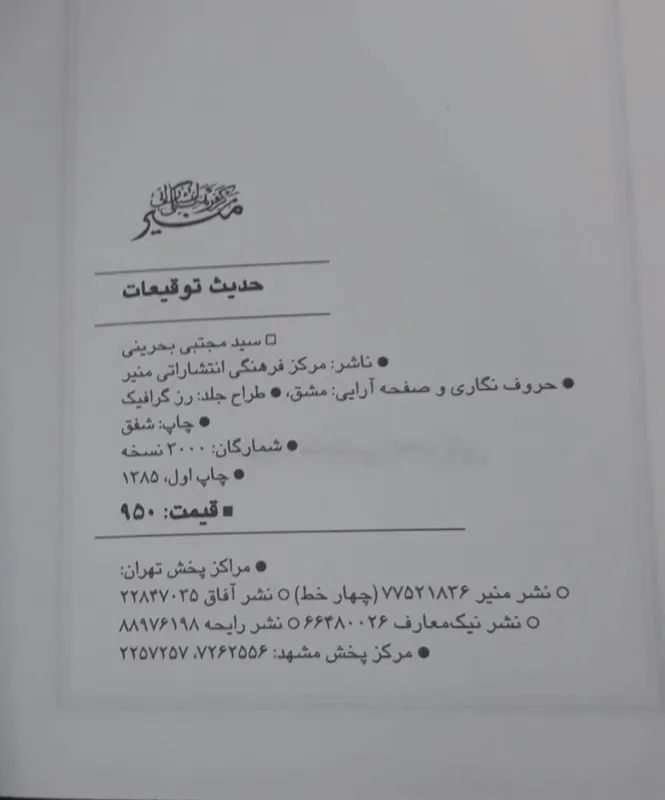 مرکز فرهنگی انتشاراتی منیر
حدیث توقیعات
□ سید مجتبی بحرینی
● ناشر: مرکز فرهنگی انتشاراتی منیر
● حروف نگاری و صفحه آرایی: مشق، ● طراح جلد: رز گرافیک
● چاپ: شفق
● شمارگان: ۳۰۰۰ نسخه
● چاپ اول، ۱۳۸۵
■ قیمت: ۹۵۰
● مراکز پخش تهران:
○ نشر منیر ۷۷۵۲۱۸۳۶ (چهار خط) ○ نشر آفاق ۲۲۸۴۷۰۳۵
○ نشر نیک‌معارف ۶۶۴۸۰۰۲۶ ○ نشر رایحه ۸۸۹۷۶۱۹۸
● مرکز پخش مشهد: ۷۲۶۲۵۵۶، ۲۲۵۷۲۵۷